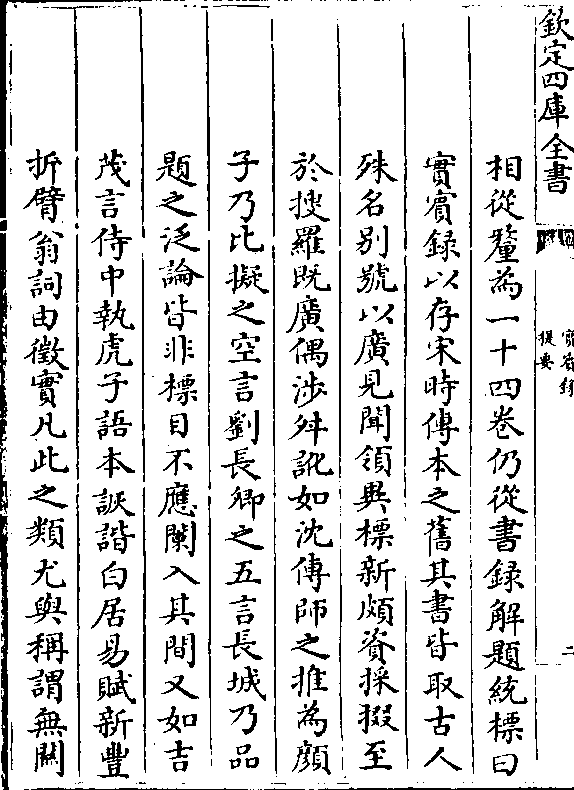 欽定四庫全書
實賓録
提要
二
相從釐為一十四巻仍從書録解題統標曰
實賓録以存宋時傳本之舊其書皆取古人
殊名别號以廣見聞領異標新頗資採掇至
於搜羅既廣偶涉舛訛如沈傳師之推為顔
子乃比擬之空言劉長卿之五言長城乃品
題之泛論皆非標目不應闌入其間又如吉
茂言侍中執虎子語本詼諧白居易賦新豐
折臂翁詞由徵實凡此之類尤與稱謂無闗